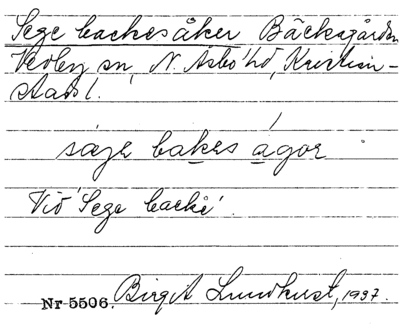 Sege backesåker Bäcksgården
Vedby sn, N. Åsbo hd, Kristian-
stads l.
säge bakes ágor
Vid "Sege backe".
Nr 5506. Birgit Lundkvist, 1937.